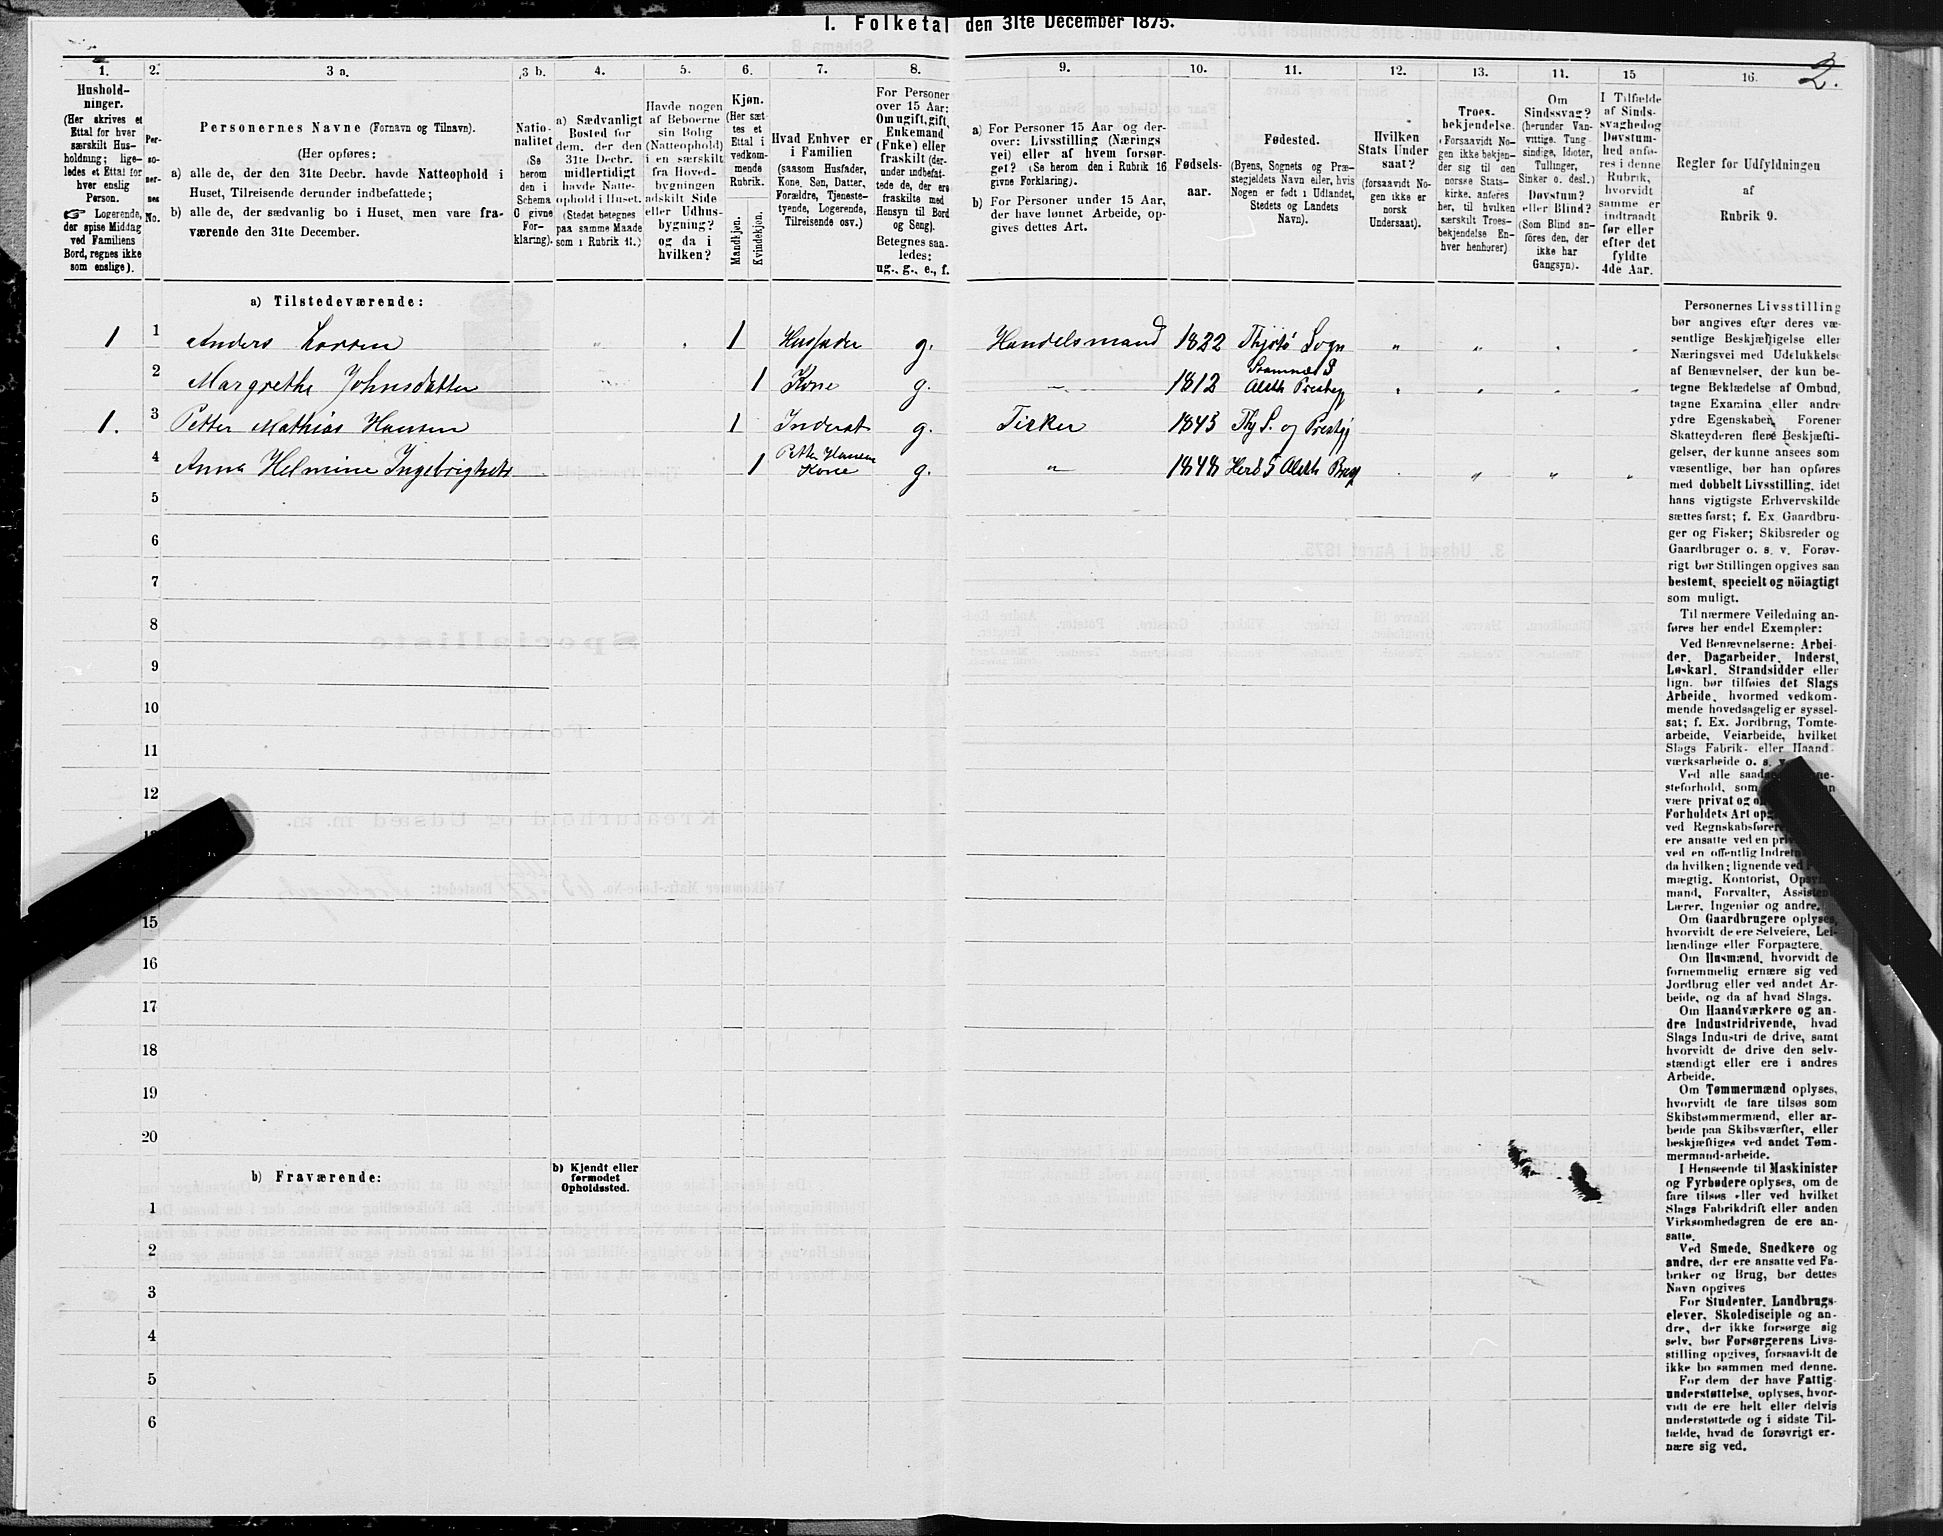 I. Folketal den 31te December 1875.
2.
1. 2. 3 a. 3 b. 4. 5. 6. 7. 8. 9. 10. 11. 12. 13. 14. 15 16.
Hushold-
ninger.
(Her skrives et
Ettal for hver
særskilt Hus-
holdning; lige-
ledes et Ettal for
hver enslig
Person.
☞ Logerende,
der spise Middag
ved Familiens
Bord, regnes ikke
som enslige).
Per-
so-
ner-
nes
No.
Personernes Navne (Fornavn og Tilnavn).
(Her opføres:
a) alle de, der den 31te Decbr. havde Natteophold i
Huset, Tilreisende derunder indbefattede;
b) alle de, der sædvanlig bo i Huset, men vare fra-
værende den 31te December.
Natio-
nalitet
(Se
herom
den i
Schema
C givne
For-
klaring).
a) Sædvanligt
Bosted for
dem, der den
31te Decbr.
midlertidigt
havde Natte-
ophold i Huset.
(Stedet betegnes
paa samme Maade
som i Rubrik 11.)
Havde nogen
af Beboerne
sin Bolig
(Natteophold)
i en særskilt
fra Hoved-
bygningen
adskilt Side
eller Udhus-
bygning?
og da i
hvilken?
Kjøn.
(Her sæt-
tes et
Ettal i
vedkom-
mende
Rubrik.
Mandkjøn.
Kvindekjøn.
Hvad Enhver er
i Familien
(saasom Husfader,
Kone, Søn, Datter,
Forældre, Tjeneste-
tyende, Logerende,
Tilreisende osv.)
For Personer
over 15 Aar:
Om ugift, gift,
Enkemand
(Enke) eller
fraskilt (der-
under indbefat-
tede de, der ere
fraskilte med
Hensyn til Bord
og Seng).
Betegnes saa-
ledes:
ug., g., e., f.
a) For Personer 15 Aar og der-
over: Livsstilling (Nærings
vei) eller af hvem forsør-
get? (Se herom den i Rubrik 16
givne Forklaring).
b) For Personer under 15 Aar,
der have lønnet Arbeide, op-
gives dettes Art.
Fødsels-
aar.
Fødested.
(Byens, Sognets og Præ-
stegjeldets Navn eller, hvis
Nogen er født i Udlandet,
Stedets og Landets
Navn).
Hvilken
Stats Under
saat?
(forsaavidt No-
gen ikke er
norsk
Undersaat).
Troes-
bekjendelse.
(Forsaavidt No-
gen ikke bekjen-
der sig til den
norske Stats-
kirke, anføres
her, til hvilken
særskilt Troes-
bekjendelse En-
hver henhører)
Om
Sindssvag?
(herunder Van-
vittige, Tung-
sindige, Idioter,
Tullinger,
Sinker o. desl.)
Døvstum?
eller Blind?
(Som Blind an-
føres den, der
ikke har
Gangsyn).
I Tilfælde
af Sinds-
svaghed og
Døvstum-
hed anfø-
res i denne
Rubrik,
hvorvidt
samme er
indtraadt
før eller
efter det
fyldte
4de Aar.
Regler for Udfyldningen
af
Rubrik 9.
a) Tilstedeværende:
1 1 Anders Larsen " " 1 Husfader g. Handelsmand 1822 Thjøtø Sogn " " " "
2 Margrethe Johnsdatter 1 Kone g. — 1812 Stamnæs S Alsth Prestegj " " " "
1. 3 Petter Mathias Hansen 1 Inderst g. Fisker 1843 Thj S. og Prestgj
4 Anna Helmine Ingebrigtsdt 1 Petter Hansens Kone g. " 1848 Herø S Alsth Preg . " " "
5
6
7
8
9
10
11
12
15
16
17
18
19
20
b) Fraværende:
b) Kjendt eller
formodet
Opholdssted.
1
2
3
4
5
6
Personernes Livsstilling
bør angives efter deres væ-
sentlige Beskjæftigelse eller
Næringsvei med Udelukkelse
af Benævnelser, der kun be-
tegne Beklædelse af Ombud,
tagne Examina eller andre
ydre Egenskaber. Forener
Skatteyderen flere Beskjæfti-
gelser, der kunne ansees som
væsentlige, bør han opføres
med dobbelt Livsstilling, idet
hans vigtigste Erhvervskilde
sættes først; f. Ex. Gaardbru-
ger og Fisker; Skibsreder og
Gaardbruger o. s. v. Forøv-
rigt bør Stillingen opgives saa
bestemt, specielt og nöiagtigt
som muligt.
Til nærmere Veiledning an-
føres her endel Exempler:
Ved Benævnelserne: Arbei-
der, Dagarbeider, Inderst,
Løskarl, Strandsidder eller
lign. bør tilføies det Slags
Arbeide, hvormed vedkom-
mende hovedsagelig er syssel-
sat; f. Ex. Jordbrug, Tomte-
arbeide, Veiarbeide, hvilket
Slags Fabrik- eller Haand-
værksarbeide o. s. v.
Ved alle
steforhold, som
være privat og
Forholdets Art
ved Regnskabsfører
ere ansatte ved en
ved en offentlig
da hvilken; lignende ved
mægtig, Kontorist,
mand, Forvalter,
Lærer, Ingeniør og andre.
Om Gaardbrugere oplyses,
hvorvidt de ere Selveiere, Lei-
lændinge eller Forpagtere.
Om Husmænd, hvorvidt de
fornemmelig ernære sig ved
Jordbrug eller ved andet Ar-
beide, og da af hvad Slags.
Om Haandværkere og an-
dre Industridrivende, hvad
Slags Industri de drive, samt
hvorvidt de drive den selv-
stændigt eller ere i andres
Arbeide.
Om Tømmermænd oplyses,
hvorvidt de fare tilsøs som
Skibstømmermænd, eller ar-
beide paa Skibsværfter, eller
beskjæftiges ved andet Tøm-
mermand-arbeide.
I Henseende til Maskinister
og Fyrbødere oplyses, om de
fare tilsøs eller ved hvilket
Slags Fabrikdrift eller anden
Virksomhedsgren de ere an-
satte.
Ved Smede, Snedkere og
andre, der ere ansatte ved Fa-
briker og Brug, bør dettes
Navn opgives
For Studenter, Landbrugs-
elever, Skoledisciple og an-
dre, der ikke forsørge sig
selv, bør Forsørgerens Livs-
stilling opgives, forsaavidt de
ikke bo sammen med denne.
For dem der have Fattig-
understøttelse, oplyses, hvor-
vidt de ere helt eller delvis
understøttede og i sidste Til-
fælde, hvad de forøvrigt er-
nære sig ved.